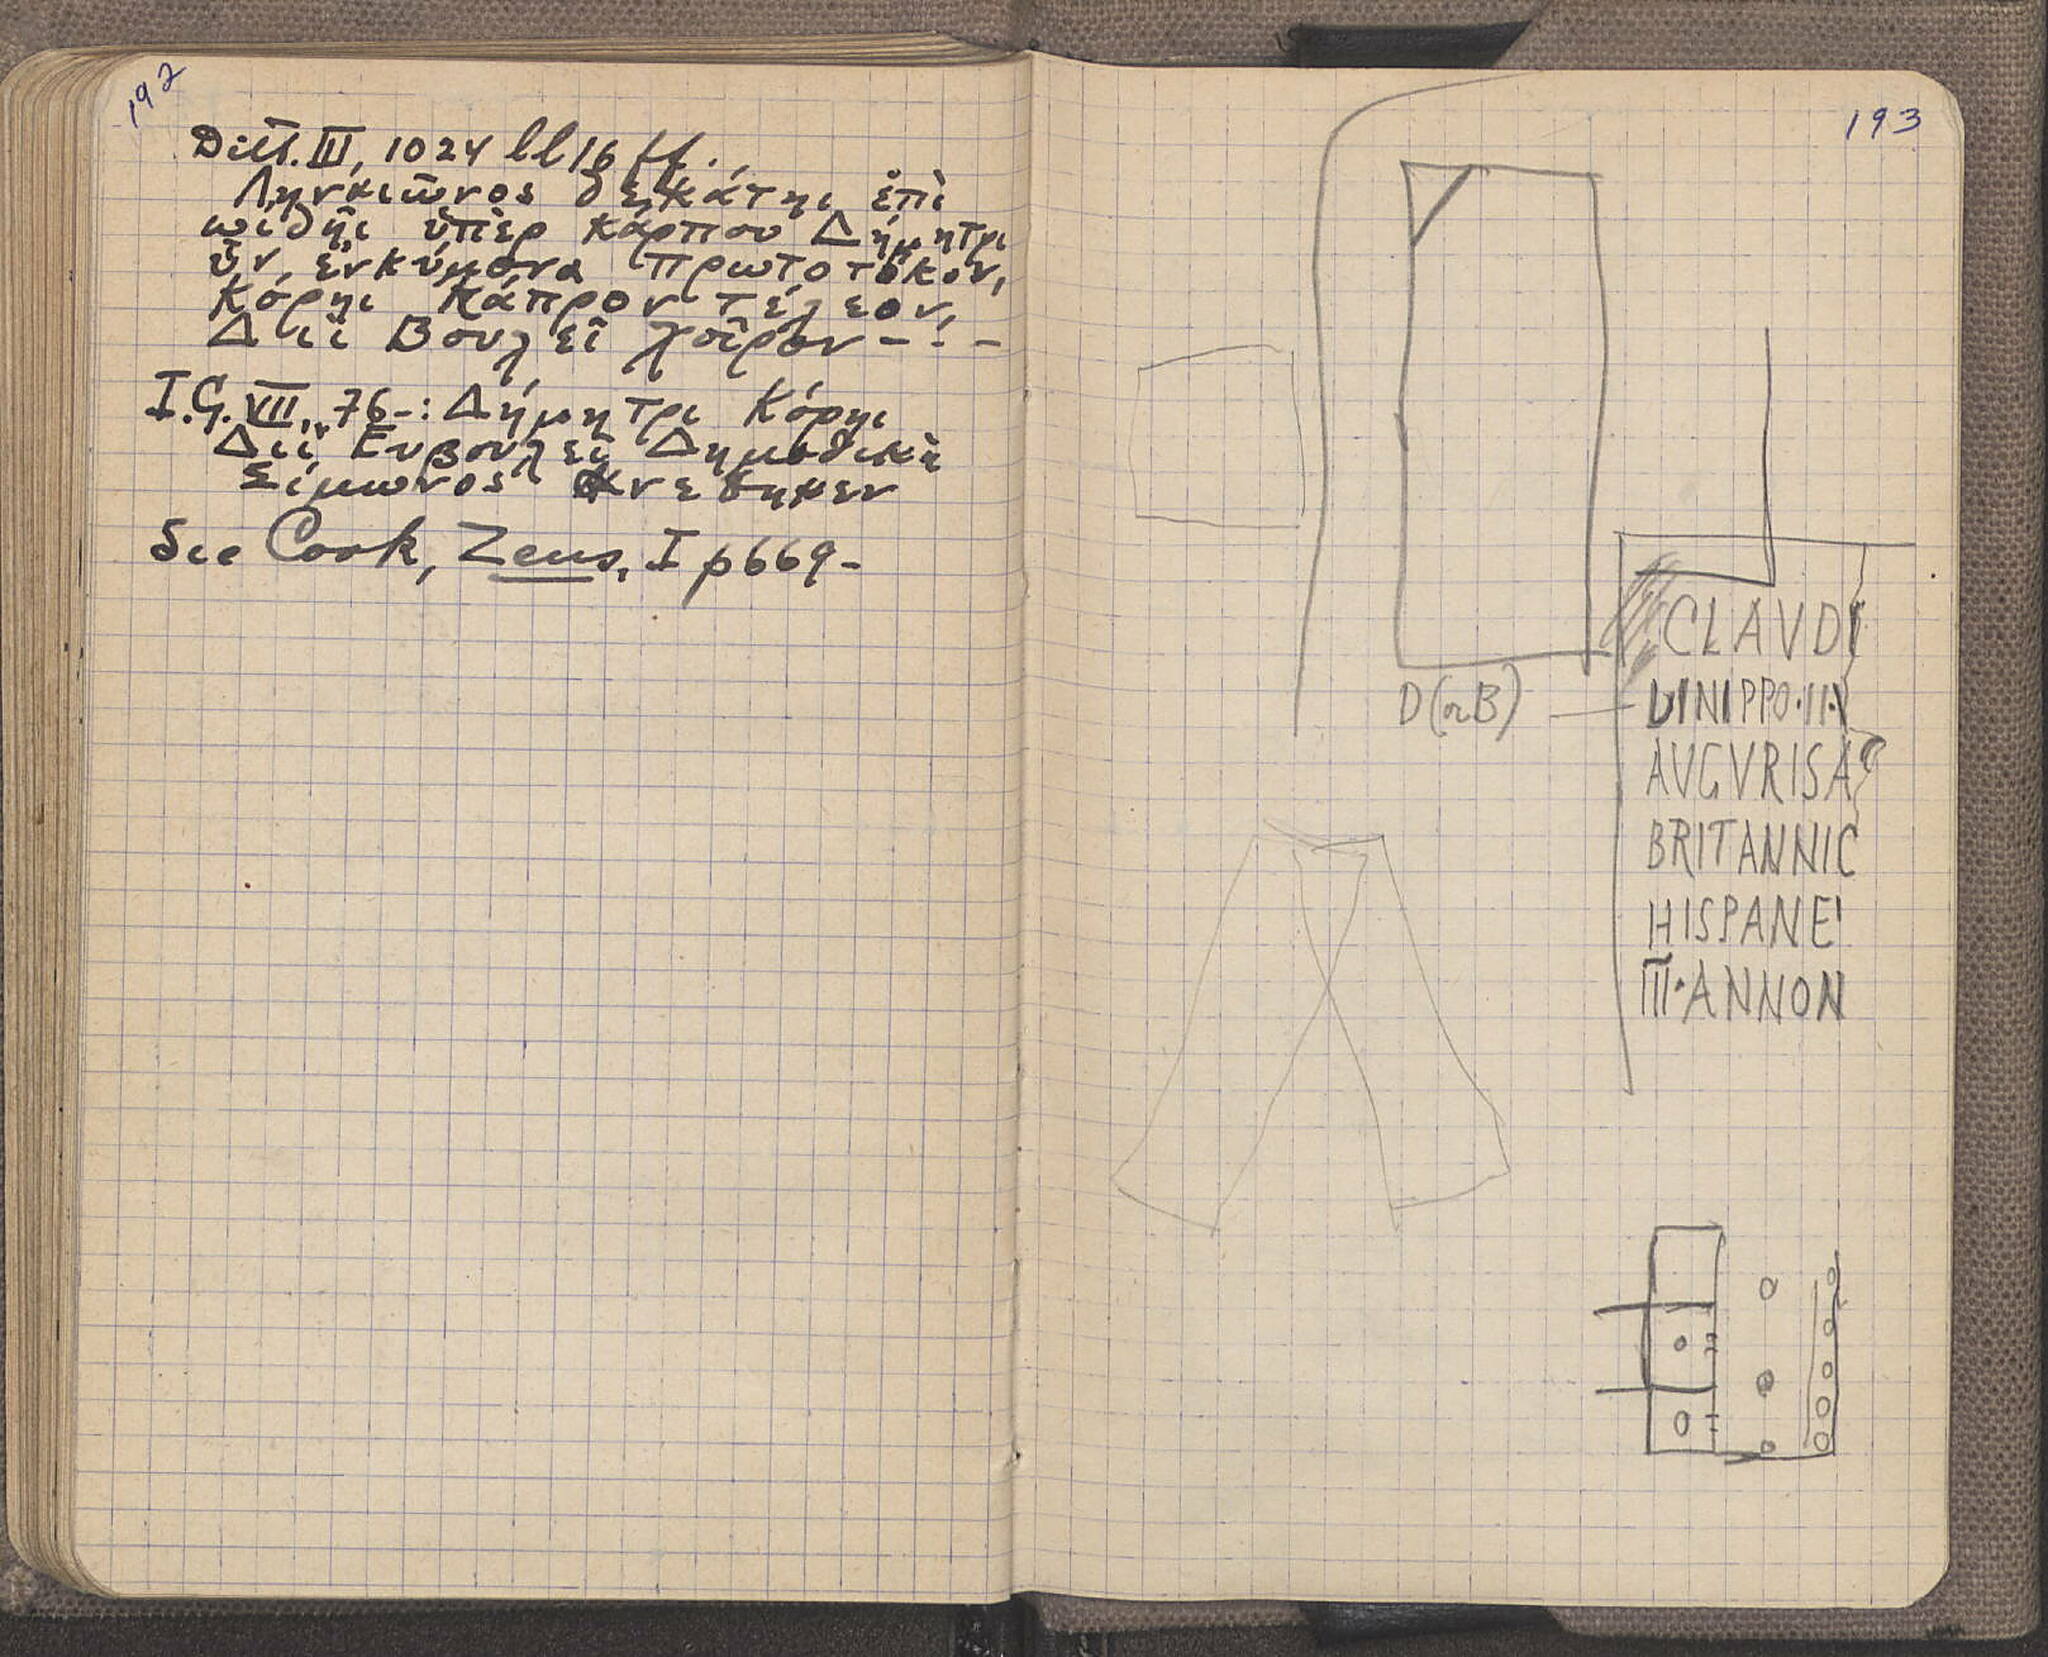 192
Ditt. III, 1024 ll 16 ff.
Ληναιῶνος δεκάτηι ἐπὶ
ωἰδῆι ὑπὲρ κάρπου Δήμητρι
ὗν ἐνκύμονα πρωτοτόκον,
Κόρηι κάπρον τέλεον,
Διὶ Βουλεῖ χοῖρον - : -
I.G. VII, 76-: Δήμητρι Κόρηι
Διὶ Ευβουλεῖ Δημοδίκη
Σίμωνος ανεθηκεν
See Cook, Zeus, I p669-
193
CLAVDI
DINIPPO·II·
D (or B)
AVGVRISA
BRITANNIC
HISPANE
III·ANNON